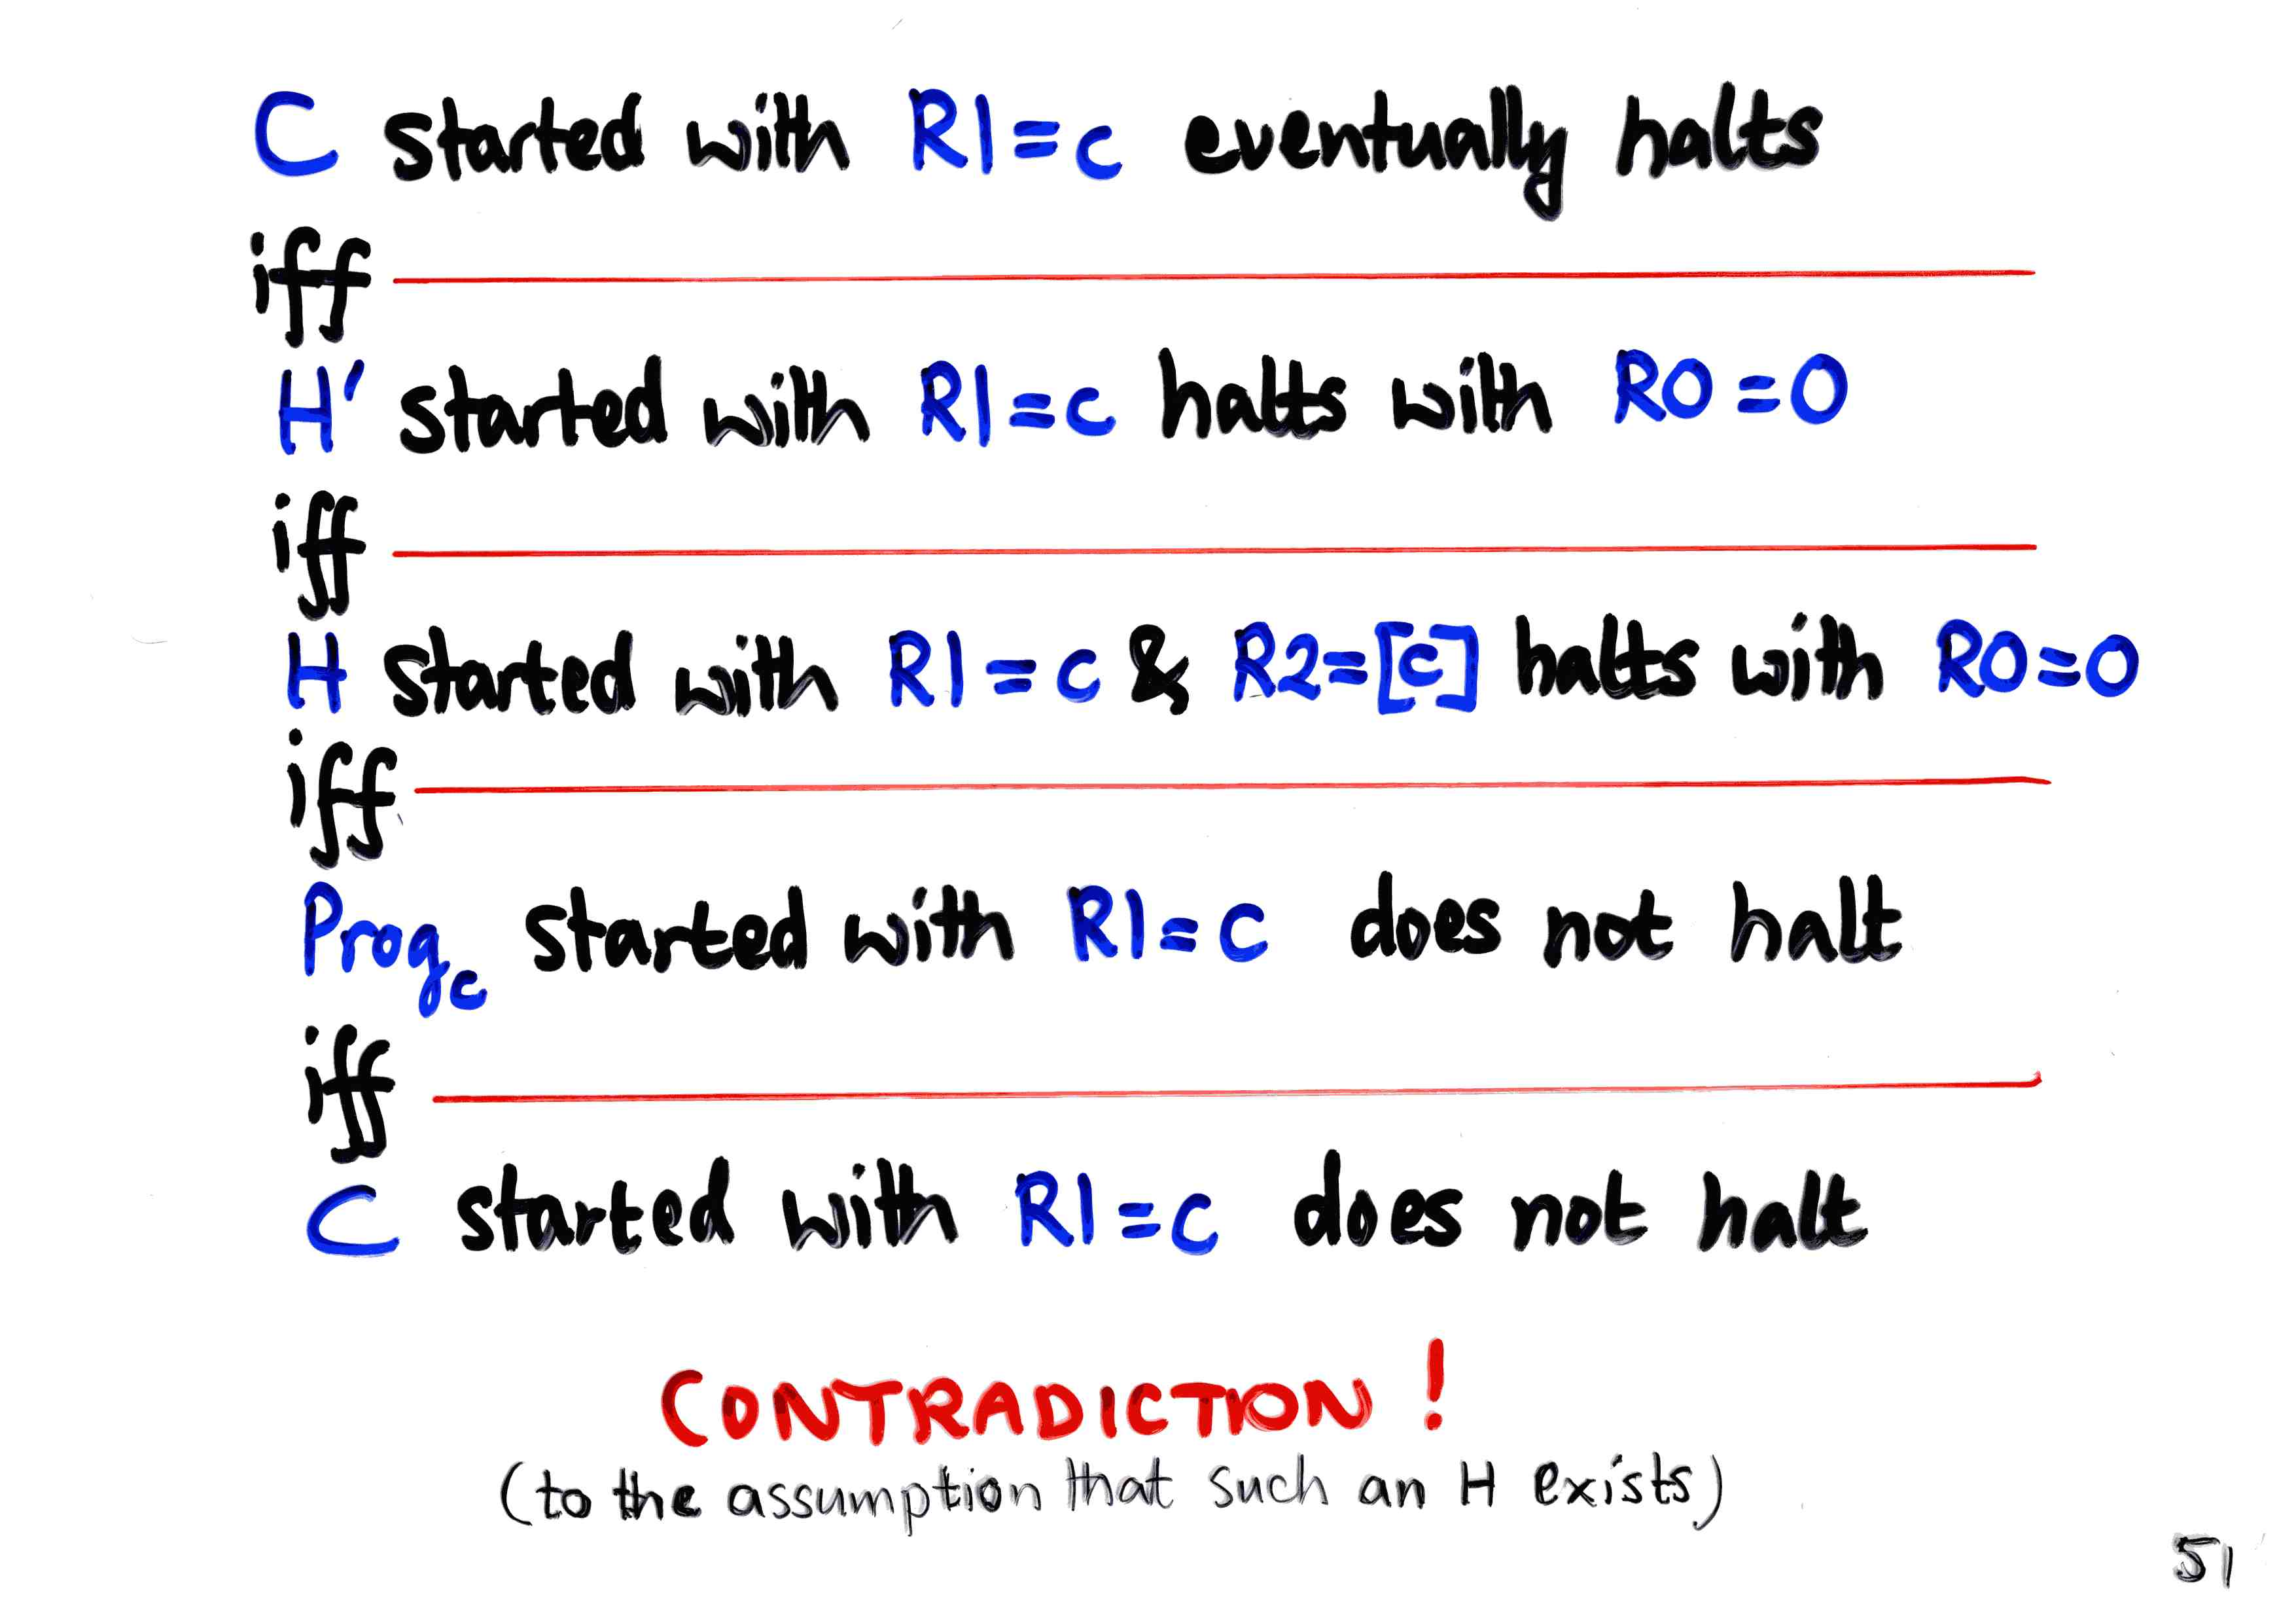 C started with R1=c eventually halts
iff
H' started with R1=c halts with R0=0
iff
H started with R1=c & R2=[c] halts with R0=0
iff
Prog_c started with R1=c does not halt
iff
C started with R1=c does not halt
CONTRADICTION!
(to the assumption that such an H exists)
51